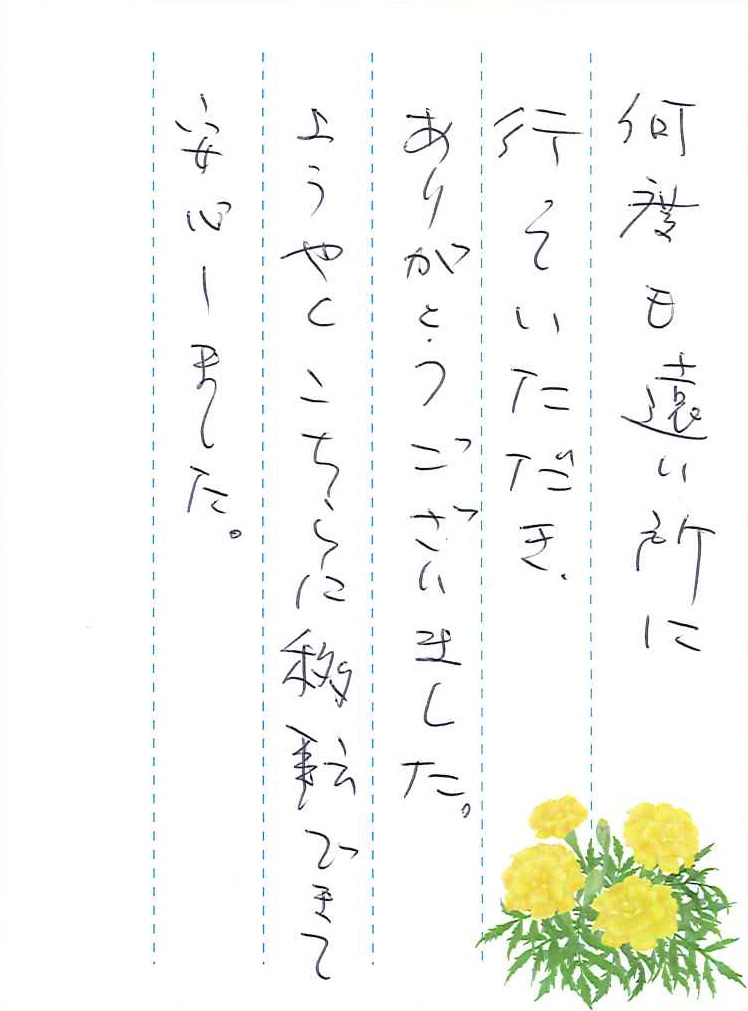 何度も遠い所に
行ていただき、
ありがとうございました。
ようやくこちらに移転できて
安心しました。